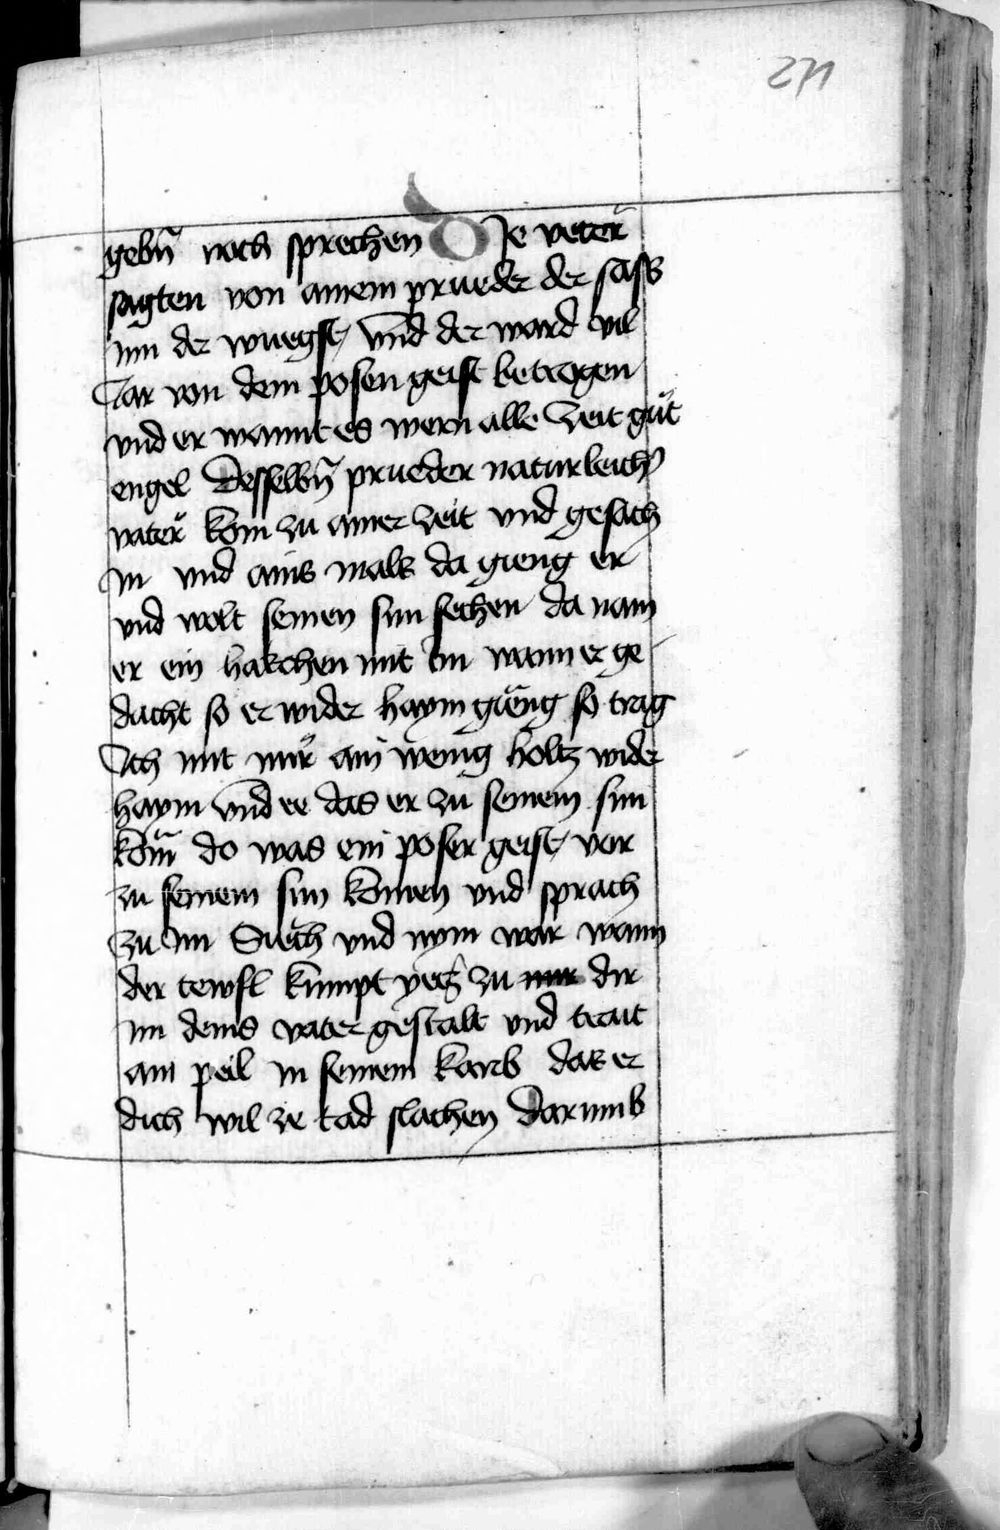 271
gebn̄ noch sprechen Die veter
sagten von ainem prueder der sass
inn der wuegst vnd der ward vil
Jar von dem posen geist betrogen
vnd er wannt es wern alle zeit gůt
engel Desselbn̄ prueder naturleich
vater kom zu ainer zeit vnd gesach
in vnd ains mals da gieng er
vnd wolt seinen sun sechen da nam
er ein hakchen mit im wann er ge
dacht so er wider haym gieng so trag
Ich mit mir ain wenig holtz wider
haym vnd ee das er zu seinem sun
kom̄ do was ein poser geist vor
zu seinem sun komen vnd sprach
zu im Siech vnd nym war wann
der tewfl kumpt yetz zu mir dir
im deins vater gestalt vnd trait
ain peil in seinem korb das er
dich wil ze tad slachen Darumb